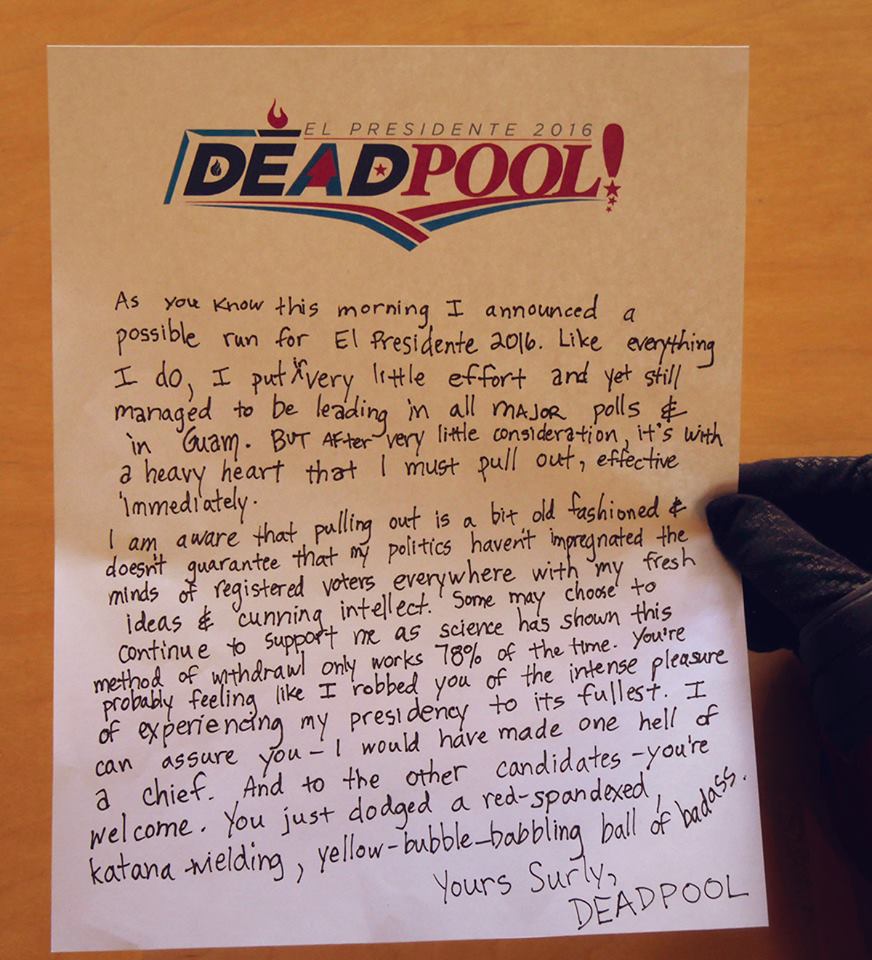 EL PRESIDENTE 2016
DEADPOOL!
As you know this morning I announced a
possible run for El Presidente 2016. Like everything
I do, I put in very little effort and yet still
managed to be leading in all MAJOR polls &
in Guam. BUT AFter very little consideration, it's with
a heavy heart that I must pull out, effective
immediately.
I am aware that pulling out is a bit old fashioned &
doesn't guarantee that my politics haven't impregnated the
minds of registered voters everywhere with my fresh
ideas & cunning intellect. Some may choose to
continue to support me as science has shown this
method of withdrawl only works 78% of the time. You're
probably feeling like I robbed you of the intense pleasure
of experiencing my presidency to its fullest. I
can assure you - I would have made one hell of
a chief. And to the other candidates - you're
welcome. You just dodged a red-spandexed,
katana-wielding, yellow-bubble-babbling ball of badass.
Yours Surly,
DEADPOOL